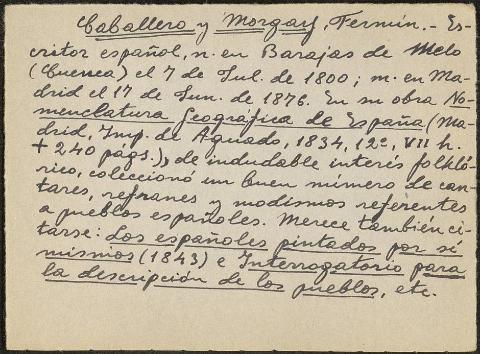 Caballero y Morgay, Fermín. - Es-
critor español, n. en Barajas de Melo
(Cuenca) el 7 de Jul. de 1800; m. en Ma-
drid el 17 de Jun. de 1876. En su obra No-
menclatura geográfica de España (Ma-
drid, Imp. de Aguado, 1834, 12º, VII h.
+ 240 págs.), de indudable interés folkló-
rico, coleccionó un buen número de can-
tares, refranes y modismos referentes
a pueblos españoles. Merece también ci-
tarse: Los españoles pintados por sí
mismos (1843) e Interrogatorio para
la descripción de los pueblos, etc.